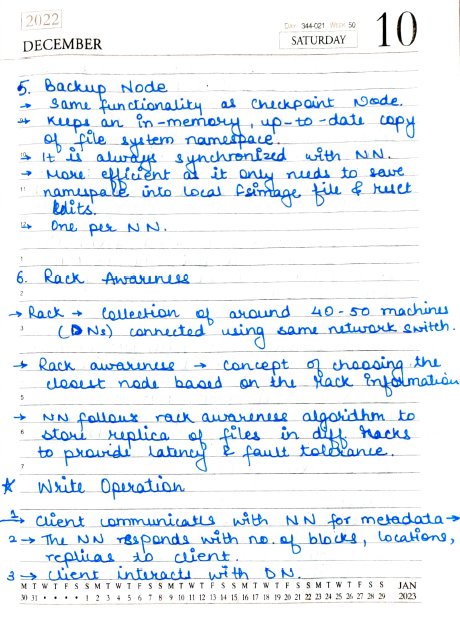 2022
DECEMBER
DAY 344-021 WEEK 50
SATURDAY
10
5. Backup Node
→ Same functionality as Checkpoint Node.
→ Keeps an in-memory, up-to-date copy
of file system namespace.
→ It is always synchronized with NN.
→ More efficient as it only needs to save
namespace into local fsimage file & reset
Edits.
→ One per NN.
6. Rack Awareness
→ Rack → Collection of around 40-50 machines
(DNs) connected using same network switch.
→ Rack awareness → concept of choosing the
closest node based on the Rack Information
→ NN follows rack awareness algorithm to
store replica of files in diff racks
to provide latency & fault tolerance.
★ Write Operation
1 → Client communicates with NN for metadata →
2 → The NN responds with no. of blocks, locations,
replicas to client.
3 → Client interacts with DN.
M T W T F S S M T W T F S S M T W T F S S M T W T F S S M T W T F S S JAN
30 31 • • • • 1 2 3 4 5 6 7 8 9 10 11 12 13 14 15 16 17 18 19 20 21 22 23 24 25 26 27 28 29 2023